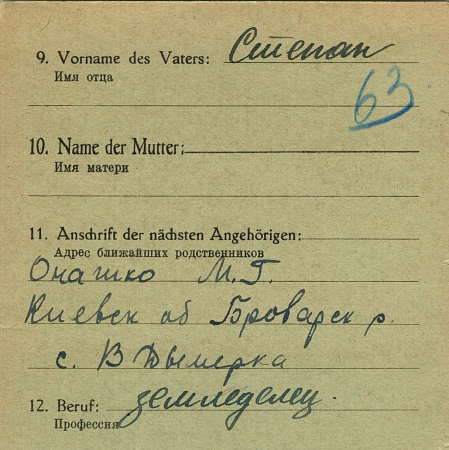 9. Vorname des Vaters: Степан
Имя отца
63
10. Name der Mutter:
Имя матери
11. Anschrift der nächsten Angehörigen:
Адрес ближайших родственников
Онашко М. Г.
Киевск об Броварск р.
с. В Дымерка
12. Beruf: земледелец.
Профессия